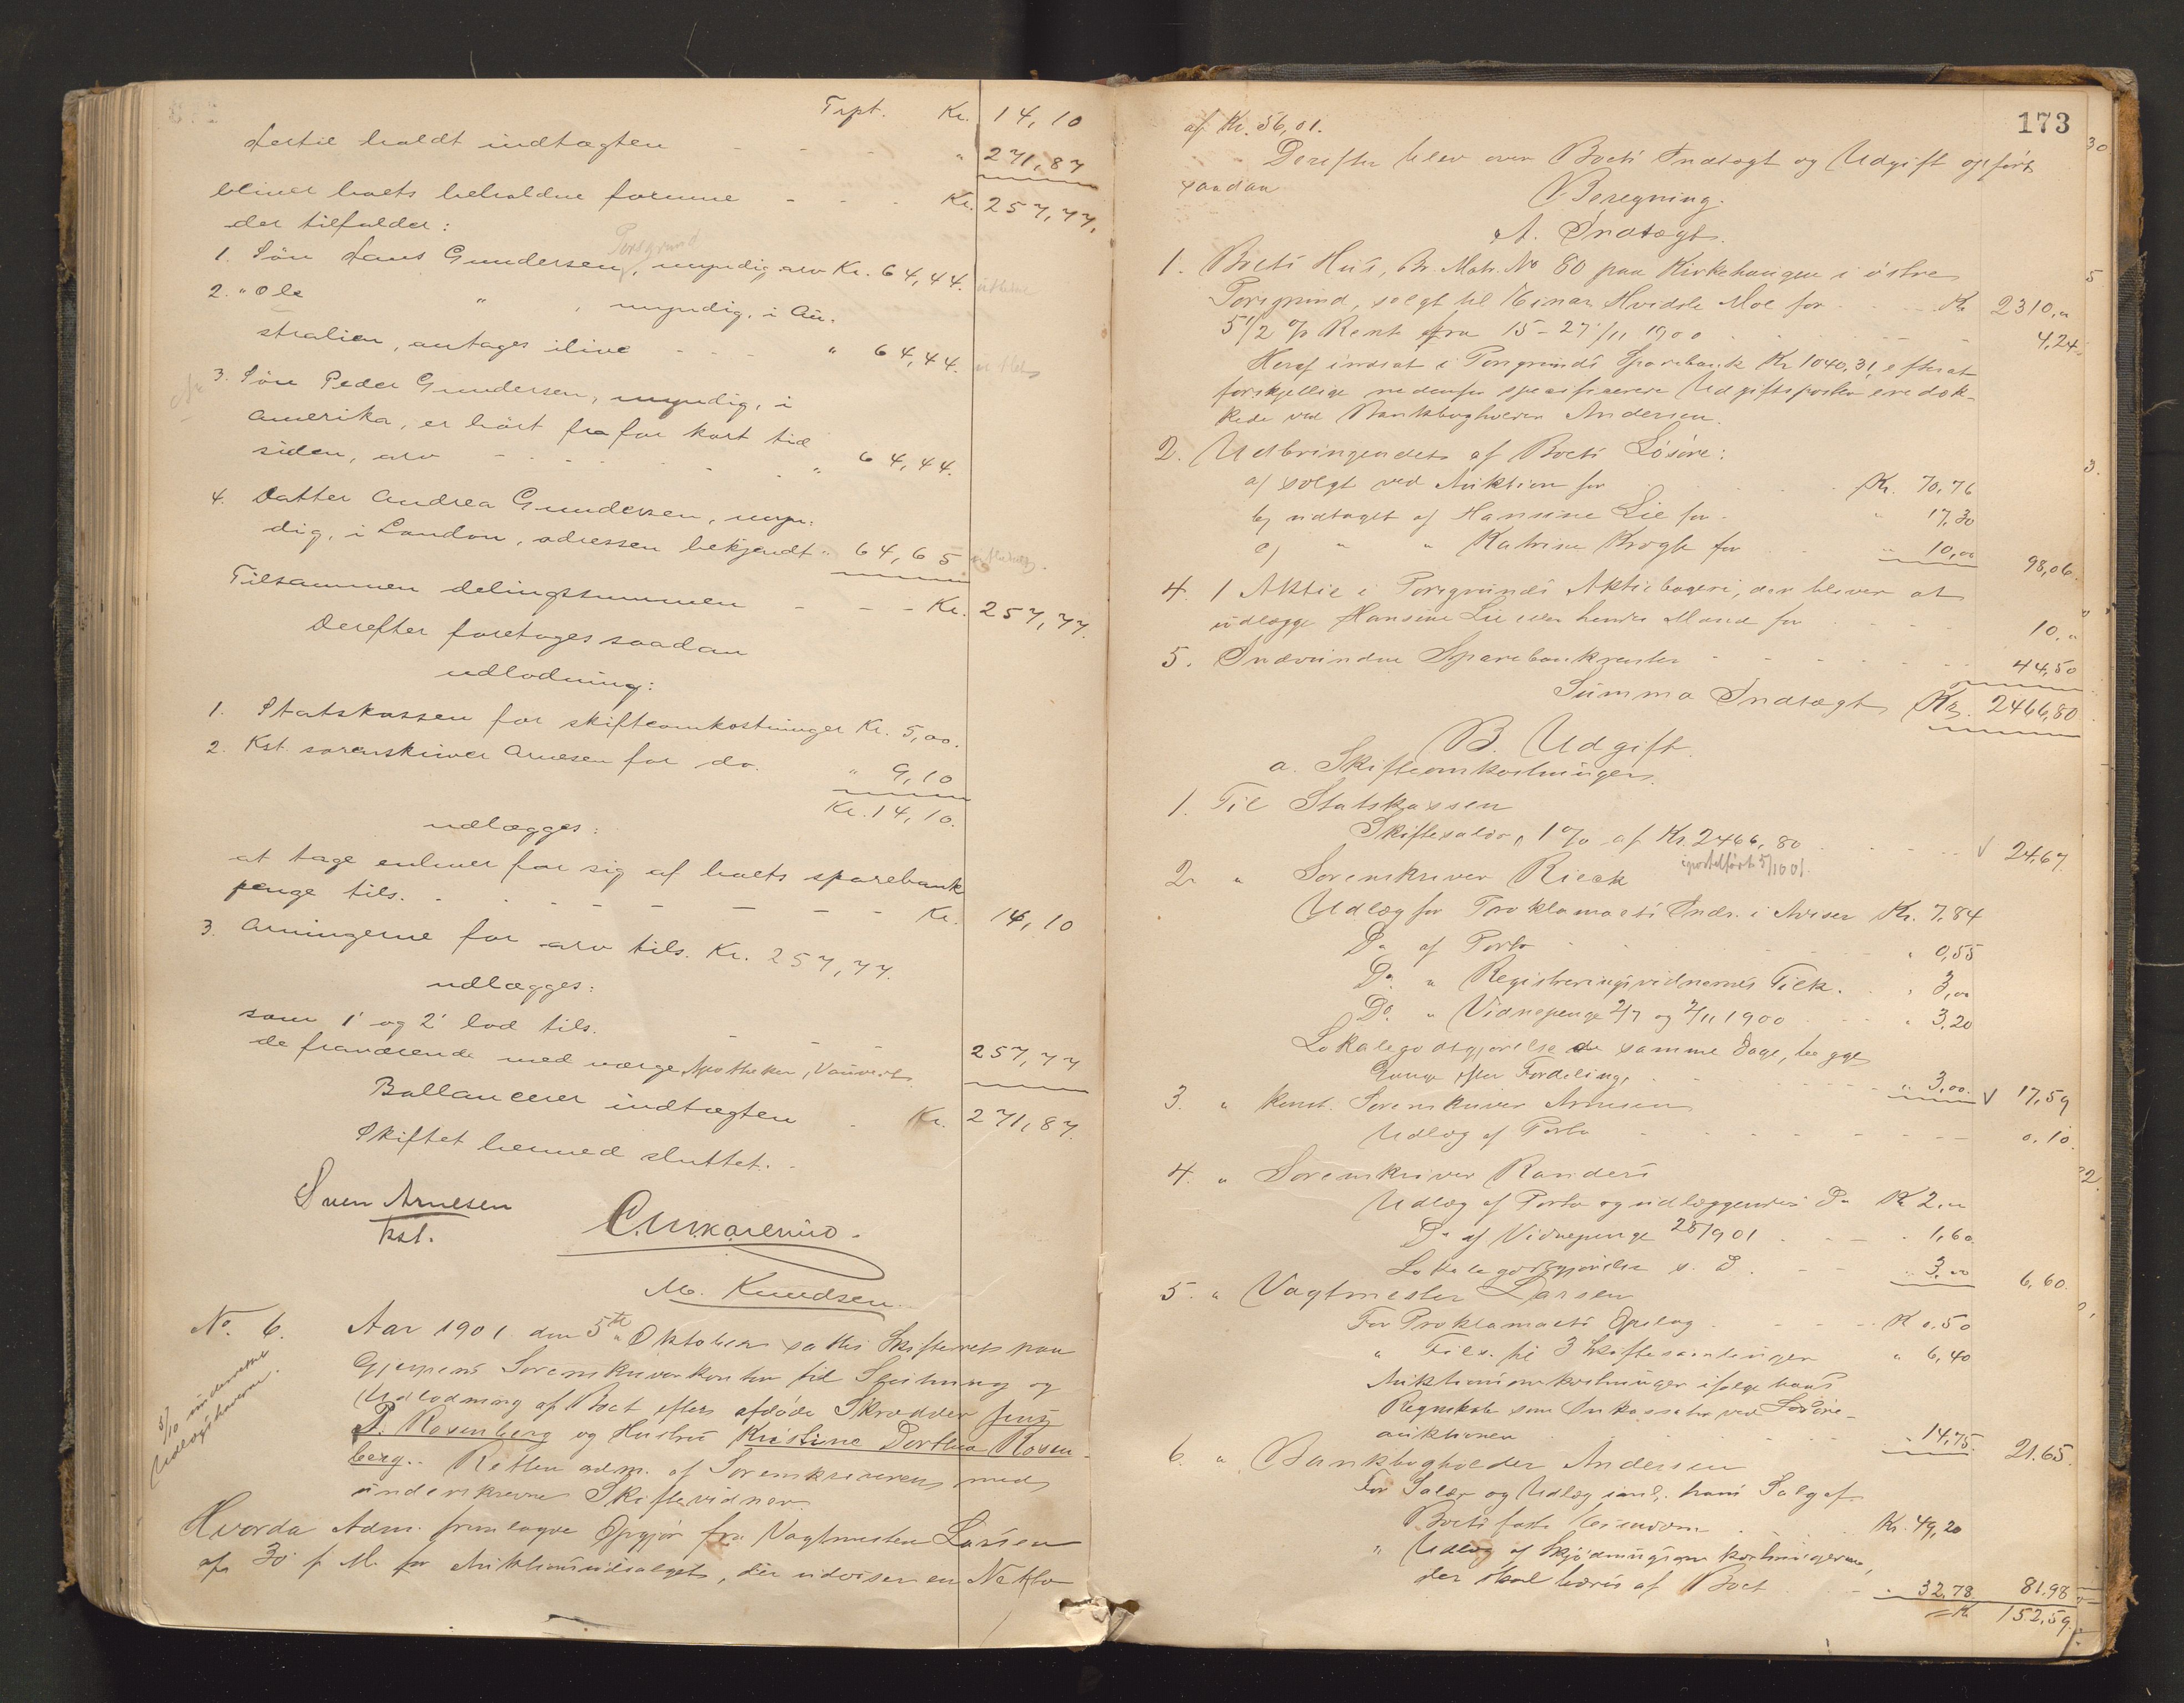 Trpt. Kr. 14,10
Hertil holdt indtægten - - - " 271,87
bliver boets beholdne formue - - - Kr. 257,77.
der tilfalder:
Porsgrund
1. Søn Hans Gundersen, myndig arv Kr. 64,44.
2. " Ole " , myndig, i Au-
stralien, antages ilive - - - " 64,44.
3. Søn Peder Gundersen, myndig, i
Amerika, er hört fra for kort tid
siden, arv - - - " 64,44.
4. Datter Andrea Gundersen, myn-
dig, i London, adressen bekjendt " 64,65
Tilsammen delingssummen - - - Kr. 257,77.
Derefter foretages saadan
udlodning:
1. Statskassen for skifteomkostninger Kr. 5,00.
2. Kst. sorenskriver Arnesen for do. " 9,10
Kr. 14,10.
udlægges:
at tage enhver for sig af boets sparebank
penge tils. - - - Kr. 14,10
3. Arvingerne for arv tils. Kr. 257,77.
udlægges:
som 1' og 2' lod tils. - - -
de fraværende med værge Apotheker, Vauvert 257,77
Ballancerer indtægten - Kr. 271,87.
Skiftet hermed sluttet.
Sven Arnesen
kst.
M. Knudsen.
No. 6. Aar 1901 den 5te Oktober sattes Skifteret paa
Gjerpens Sorenskriverkontor til Slutning og
Udlodning af Boet efter afdøde Skrædder Jens
P. Rosenberg og Hustru Kristine Dorthea Rosen-
berg. Retten adm. af Sorenskriveren med
underskrevne Skiftevidner.
5/10 underrettet
Udlægshaverne.
Hvorda Adm. fremlagde Opgjør fra Vagtmester Larsen
af 30 f. M. for Auktionsudsalget, der udviser en Netto
173
af Kr. 56,01.
Derefter blev over Boets Indtægt og Udgift opført
saadan
Beregning.
A. Indtægt.
1. Boets Hus, Br. Matr. No 80 paa Kirkehaugen i østre
Porsgrund, solgt til Einar Hvidsle Moe for - - - Kr. 2310,"
5 1/2 % Rent fra 15 - 27/11 1900 - - - 4,24
Heraf indsat i Porsgrunds Sparebank Kr. 1040,31, efterat
forskjellige nedenfor specificerede Udgiftsposter ere dæk-
kede ved Bankbogholder Andersen.
2. Udbringendet af Boets Løsøre:
a) solgt ved Auktion for - - - Kr. 70,76
b) udtaget af Hansine Lie for - " 17,30
c) " " Katrine Krogh for - " 10,00 98,06.
4. 1 Aktie i Porsgrunds Aktiebageri, der bliver at
udlægge Hansine Lie eller hendes Mand for - - - 10,"
5. Indvundne Sparebankrenter - - - 44,50
Summa Indtægt Kr. 2466,80
B. Udgift.
a. Skifteomkostninger.
1. Til Statskassen
Skiftesalær, 1 % af Kr. 2466,80 - - - 24,67
2. " Sorenskriver Rieck
Udlæg for Proklamaets Indr. i Aviser Kr. 7,84
Do af Porto - - - " 0,55
Do " Registreringsvidnernes Tilk. " 3,00
Do. " Vidnepenge 2/7 og 7/11 1900 - - " 3,20
Lokalegodtgjørelse de samme Dage, begge
Gange efter Fordeling, - - - " 3,00. 17,59
3. " Konst. Sorenskriver Arnesen
Udlæg af Porto - - - 0,10.
4. " Sorenskriver Randers
Udlæg af Porto og udlæggendes Do Kr 2,"
Do af Vidnepenge 28/9 01 - - - 1,60
Lokalegodtgjørelse s. D. - - " 3,00 6,60.
5. " Vagtmester Larsen
For Proklamaets Opslag - - - Kr 0,50
" Tils. til 3 Skiftesamlinger " 6,40
Auktionsomkostninger ifølge hans
Regnskab som Inkassator ved Løsøre-
auktionen - - - " 14,75. 21.65.
6. " Bankbogholder Andersen
For Salær og Udlæg i anl. hans Salg af
Boets faste Eiendom - - - Kr. 49,20
" Udlæg af Skjødningsomkostningerne,
der skal bæres af Boet - " 32,78 81,98
Kr 152,59.